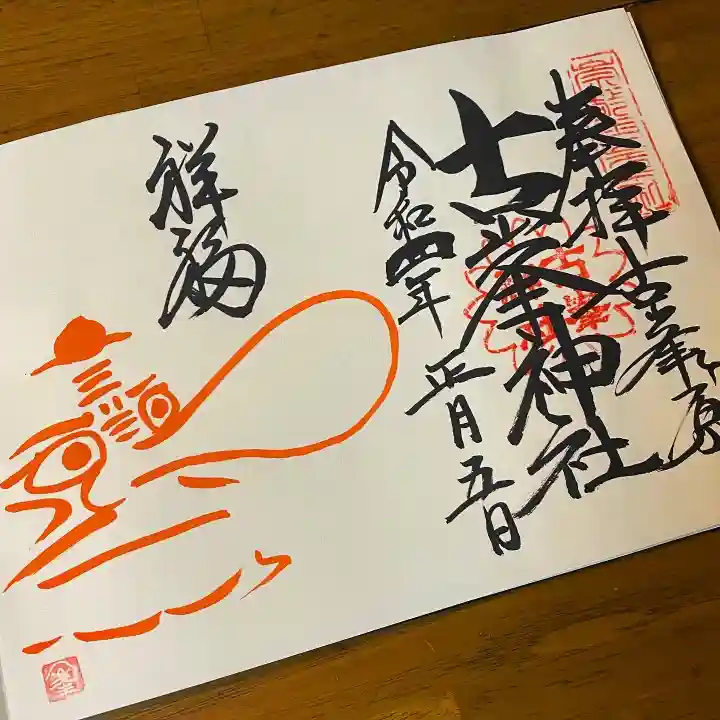 奉拝
古峯ヶ原
古峯神社
令和四年
正月五日
祥福